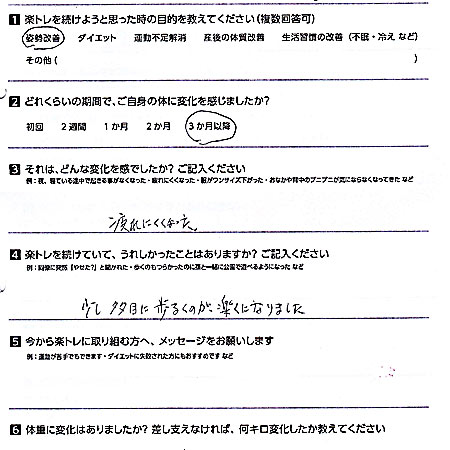 1 楽トレを続けようと思った時の目的を教えてください(複数回答可)
姿勢改善 ダイエット 運動不足解消 産後の体質改善 生活習慣の改善(不眠・冷え など)
その他( )
2 どれくらいの期間で、ご自身の体に変化を感じましたか?
初回 2週間 1か月 2か月 3か月以降
3 それは、どんな変化を感でしたか? ご記入ください
例:夜、寝ている途中で起きる事がなくなった・疲れにくくなった・服がワンサイズ下がった・おなかや背中のプニプニが気にならなくなってきた など
疲れにくくなった。
4 楽トレを続けていて、うれしかったことはありますか? ご記入ください
例:同僚に突然「やせた?」と聞かれた・歩くのもつらかったのに孫と一緒に公園で遊べるようになった など
少し多目に歩るくのが、楽くになりました
5 今から楽トレに取り組む方へ、メッセージをお願いします
例:運動が苦手でもできます・ダイエットに失敗された方にもおすすめです など
6 体重に変化はありましたか? 差し支えなければ、何キロ変化したか教えてください